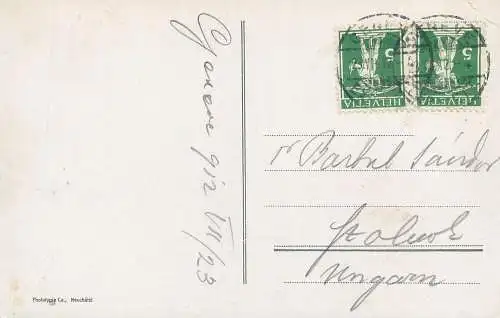 Geneve 912 VII/23
5 HELVETIA
5 HELVETIA
Barbal Sándor
Szolnok
Ungarn
Phototypie Co., Neuchâtel